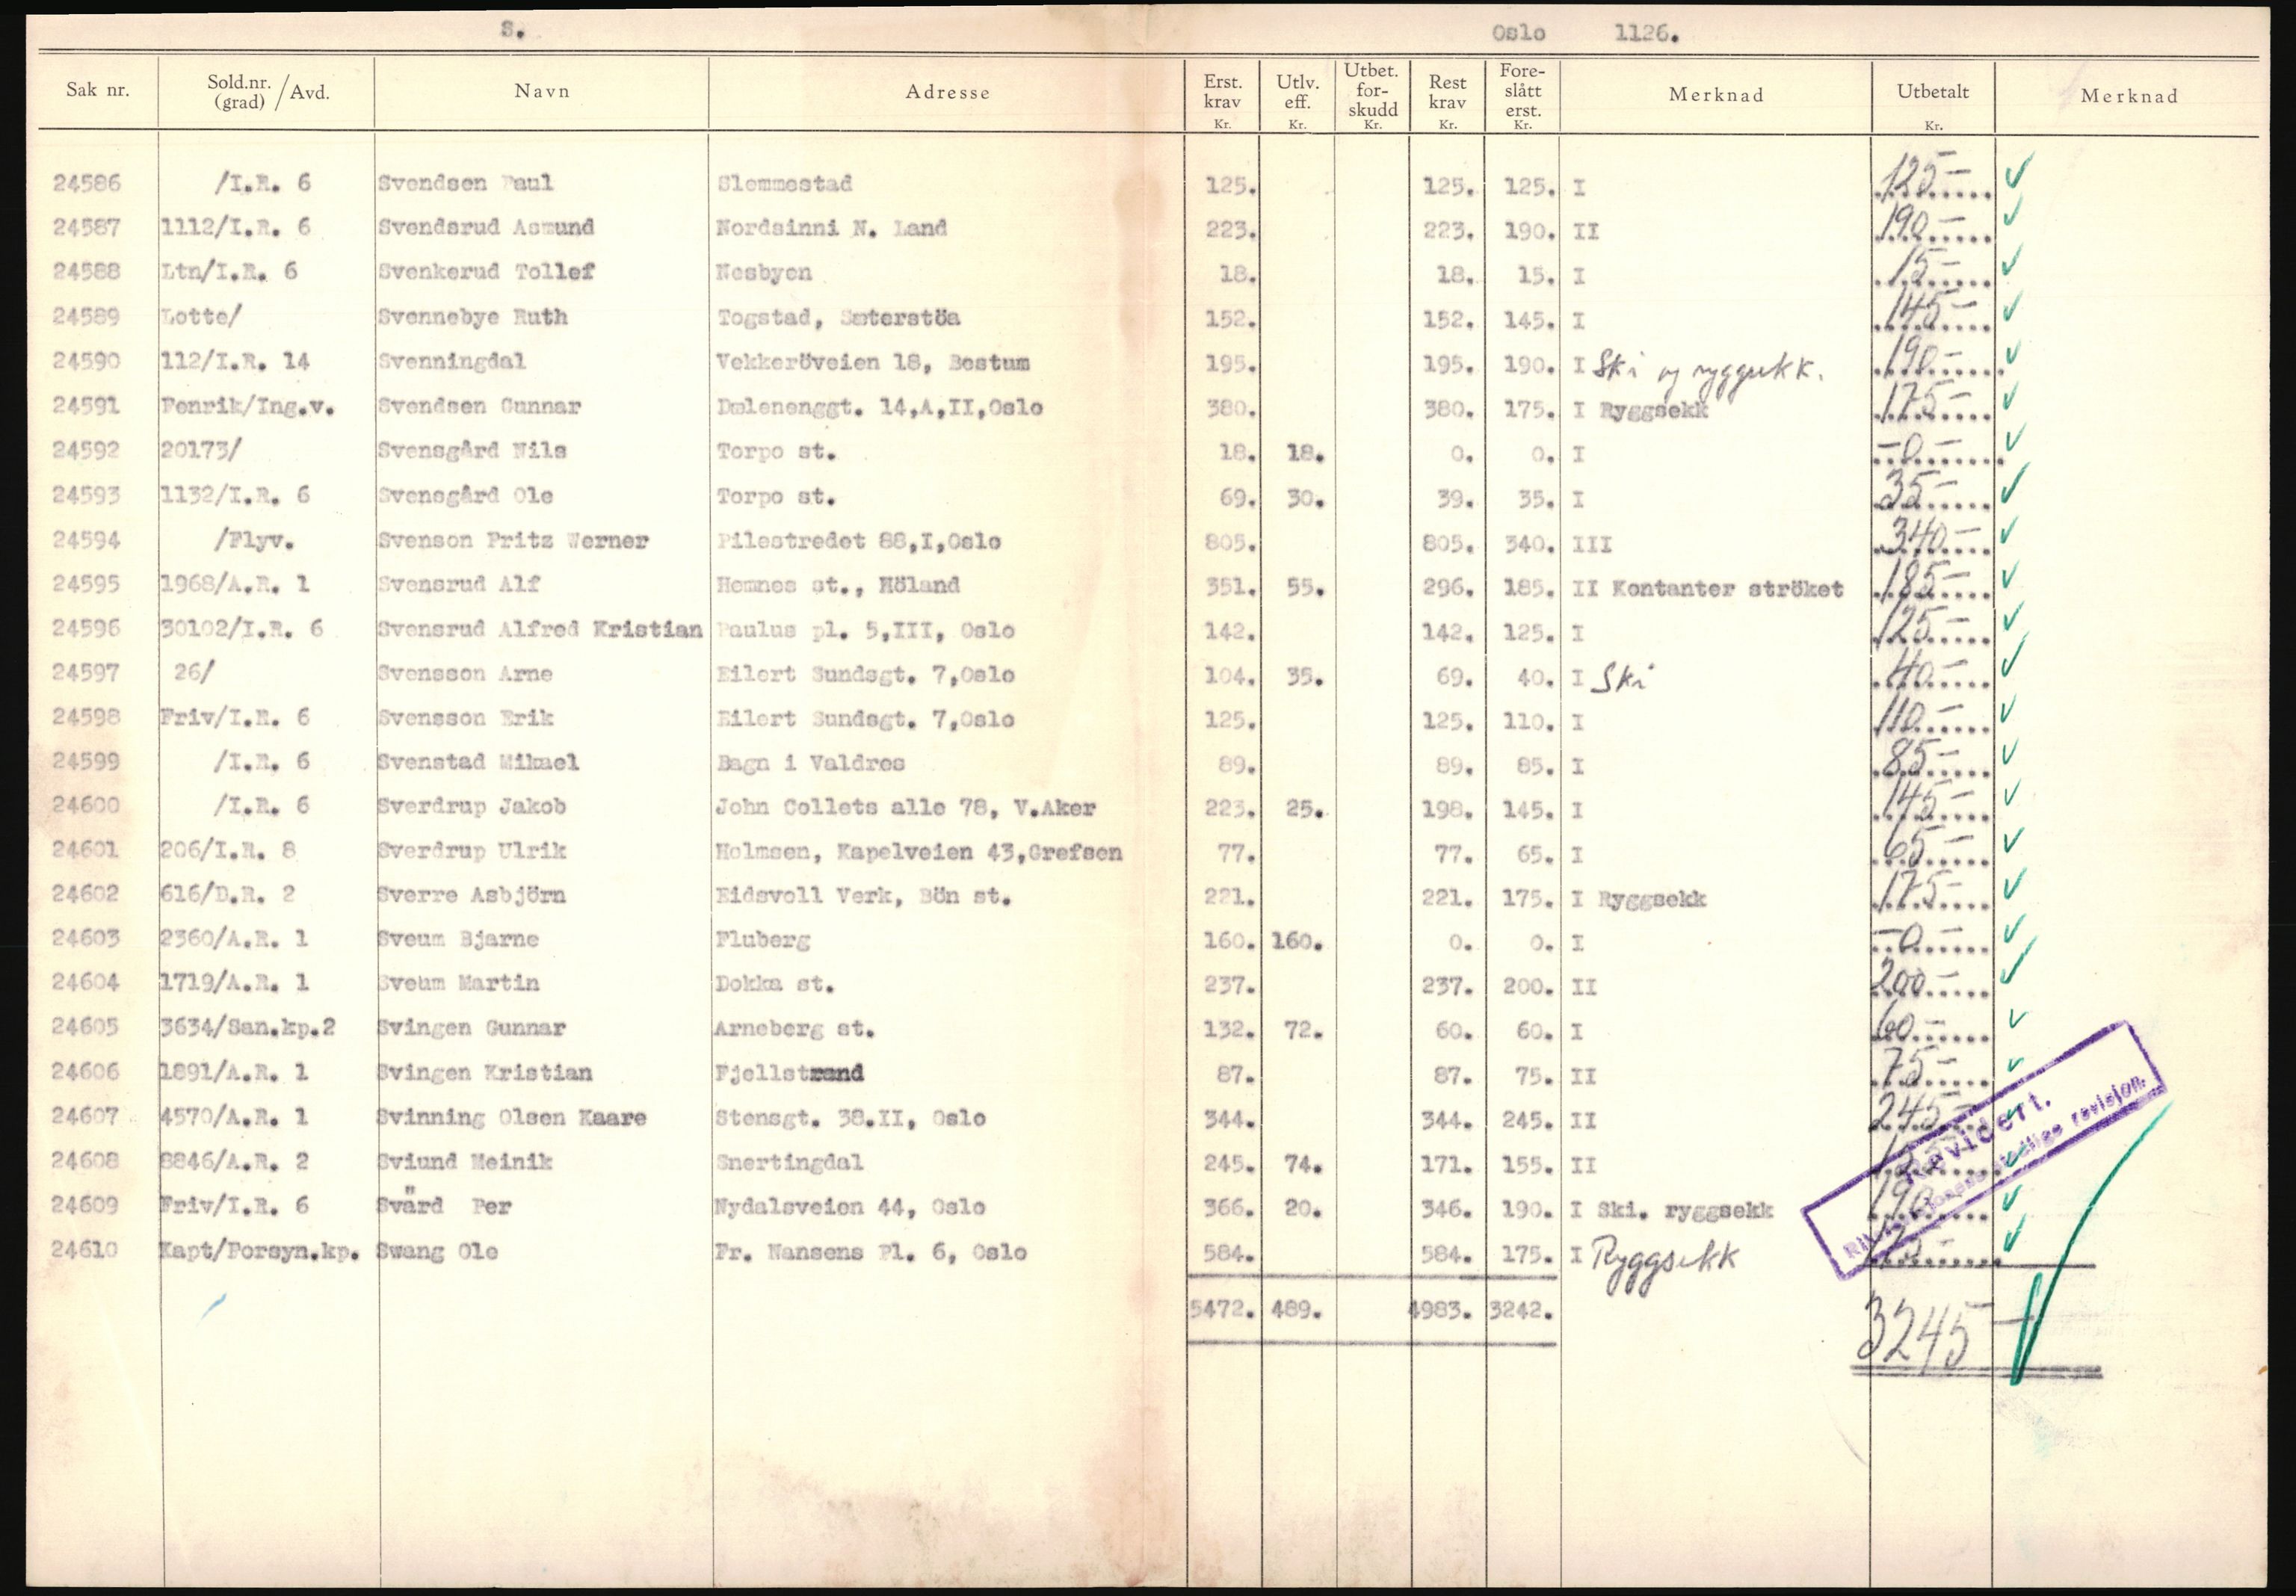 S. Oslo 1126.
Sak nr. Sold.nr. (grad) / Avd. Navn Adresse Erst. krav Kr. Utlv. eff. Kr. Utbet. for- skudd Kr. Rest krav Kr. Fore- slått erst. Kr. Merknad Utbetalt Kr. Merknad
24586 /I.R. 6 Svendsen Paul Slemmestad 125. 125. 125. I 125-
24587 1112/I.R. 6 Svendsrud Asmund Nordsinni N. Land 223. 223. 190. II 190-
24588 Ltn/I.R. 6 Svenkerud Tollef Nesbyen 18. 18. 15. I 15-
24589 Lotte/ Svennebye Ruth Togstad, Sæterstöa 152. 152. 145. I 145-
24590 112/I.R. 14 Svenningdal Vekkeröveien 18, Bestum 195. 195. 190. I Ski og ryggsekk. 190-
24591 Fenrik/Ing.v. Svendsen Gunnar Dælenenggt. 14,A,II,Oslo 380. 380. 175. I Ryggsekk 175-
24592 20173/ Svensgård Nils Torpo st. 18. 18. 0. 0. I -0-
24593 1132/I.R. 6 Svensgård Ole Torpo st. 69. 30. 39. 35. I 35-
24594 /Flyv. Svenson Fritz Werner Pilestredet 88,I,Oslo 805. 805. 340. III 340-
24595 1968/A.R. 1 Svensrud Alf Hemnes st., Höland 351. 55. 296. 185. II Kontanter ströket 185-
24596 30102/I.R. 6 Svensrud Alfred Kristian Paulus pl. 5,III, Oslo 142. 142. 125. I 125-
24597 26/ Svensson Arne Eilert Sundsgt. 7,Oslo 104. 35. 69. 40. I Ski 40-
24598 Friv/I.R. 6 Svensson Erik Eilert Sundsgt. 7,Oslo 125. 125. 110. I 110-
24599 /I.R. 6 Svenstad Mikael Bagn i Valdres 89. 89. 85. I 85-
24600 /I.R. 6 Sverdrup Jakob John Collets alle 78, V.Aker 223. 25. 198. 145. I 145-
24601 206/I.R. 8 Sverdrup Ulrik Holmsen, Kapelveien 43,Grefsen 77. 77. 65. I 65-
24602 616/D.R. 2 Sverre Asbjörn Eidsvoll Verk, Bön st. 221. 221. 175. I Ryggsekk 175-
24603 2360/A.R. 1 Sveum Bjarne Fluberg 160. 160. 0. 0. I -0-
24604 1719/A.R. 1 Sveum Martin Dokka st. 237. 237. 200. II 200-
24605 3634/San.kp.2 Svingen Gunnar Arneberg st. 132. 72. 60. 60. I 60-
24606 1891/A.R. 1 Svingen Kristian Fjellstrand 87. 87. 75. II 75-
24607 4570/A.R. 1 Svinning Olsen Kaare Stensgt. 38.II, Oslo 344. 344. 245. II 245-
24608 8846/A.R. 2 Sviund Meinik Snertingdal 245. 74. 171. 155. II
24609 Friv/I.R. 6 Svärd Per Nydalsveien 44, Oslo 366. 20. 346. 190. I Ski. ryggsekk 190
24610 Kapt/Forsyn.kp. Swang Ole Fr. Nansens Pl. 6, Oslo 584. 584. 175. I Ryggsekk
Revidert.
revisjon.
5472. 489. 4983. 3242. 3245-